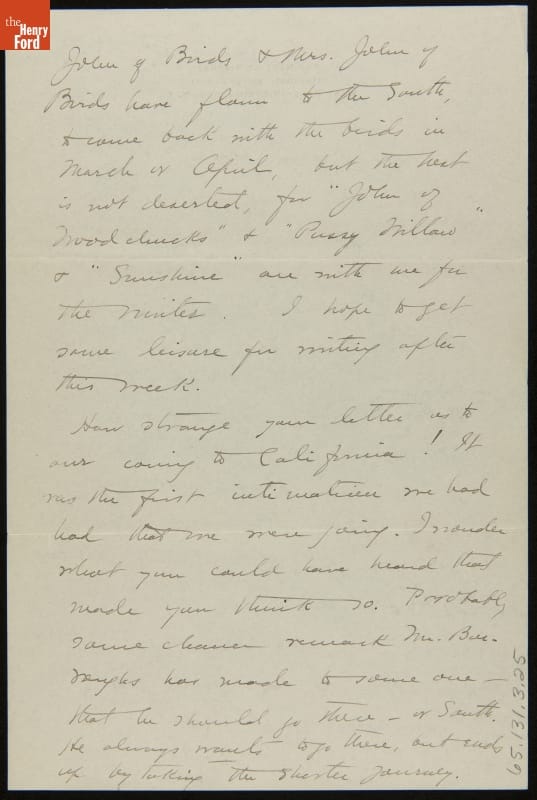 the
Henry
Ford
John of Birds & Mrs. John of
Birds have flown to the South,
to come back with the birds in
March or April, but the nest
is not deserted, for "John of
Woodchucks" & "Pussy Willow"
& "Sunshine" are with me for
the winter. I hope to get
some leisure for writing after
this week.
How strange your letter as to
our coming to California! It
was the first intimation we had
had that we were going. I wonder
what you could have heard that
made you think so. Probably
some chance remark Mr. Bur-
roughs has made to some one -
that he should go there - or South.
He always wants to go there, but ends
up by taking the shorter journey.
65.131.3.25